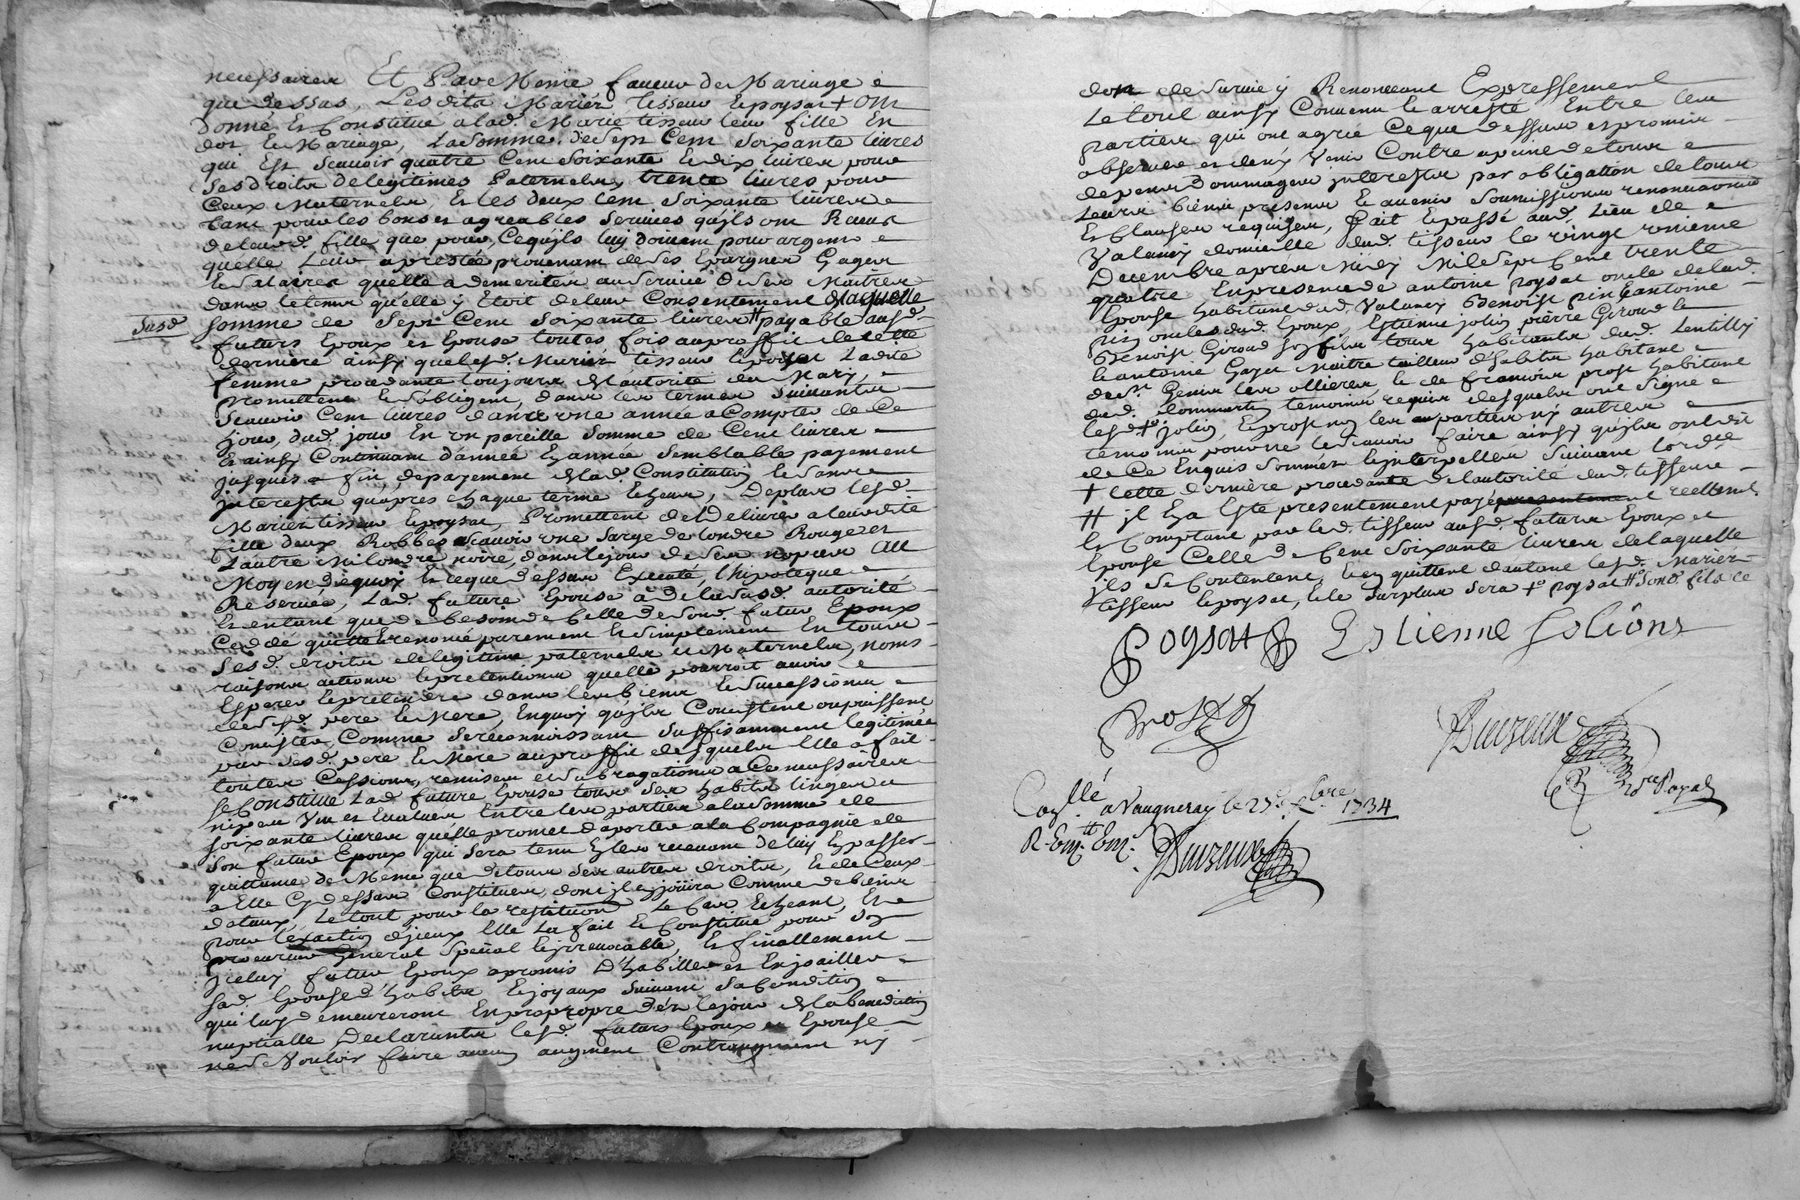 necessaires Et Par Meme faveur de Mariage e
que dessus, Lesdits Mariés tisseur Epoysat + Ont
donné Et Constitué a lad. Marie tisseur leur fille En
dot Et Mariage, La Somme de Sept Cent Soixante livres
qui Est Scavoir quatre Cent Soixante Et dix livres pour
Ses droits de legitimes Paternels, trente livres pour
Ceux Maternels, Et les deux Cent Soixante livres
tant pour les bons et agreables Services qu'ils ont Receus
de leurd. fille que pour Ce qu'ils luy doivent pour argent
quelle Leur a presté provenant de Ses Epargnes Gages
Et Salaires quelle a démerités au Service de Ses Maitres
dans le tems qu'elle y Etoit de leur Consentement Laquelle
Susd. Somme de Sept Cent Soixante livres # payable ausd.
futurs Epoux et Epouse toutes fois au proffit de cette
derniere ainsy que lesd. Mariés tisseur Epoysat Ladite
femme procedante toujours de l'autorité du Mary,
Promettent Et S'obligent, dans les termes Suivants
Scavoir Cent livres dans une année a Compter de Ce
jour, dud. jour En un pareille Somme de Cent livres
Et ainsy Continuant d'année En année Semblable payement
jusques a fin de payement de lad. Constitution Et Sans
interests qu'apres chaque terme Echeus, De plus lesd.
Mariés tisseur Epoysat, Promettent de Délivrer a leurdite
fille deux Robbes Scavoir une Sarge de londre Rouge et
L'autre Milondre noire, dans le jour de Ses nopces Au
Moyen dequoy Et ce que dessus Executé, l'hipoteque
Reservée, Lad. future Epouse a de la Susd. autorité
Et entant que de besoin de Celle de Sond. futur Epoux
Cedé quitté Et renoncé purement Et Simplement En tous
Sesd. droits de legitime paternels et Maternels, noms
raisons actions Et pretentions quelle pourroit avoir
Esperer Et pretendre dans les biens Et Successions
de Sesd. pere Et Mere, En quoy qu'ils Consistent ou puissent
Consister, Comme Se reconnoissant Suffisamment legitimée
par Sesd. pere Et Mere au proffit desquels Elle a fait
toutes Cessions, remises et Subrogations a Ce necessaires
Se Constitue Lad. future Epouse tous Ses habits linges et
nipes Vus et Evalués Entre les parties a la Somme de
Soixante livres qu'elle promet d'aporter a la Compagnie de
Son futur Epoux qui Sera tenu En les recevant de luy En passer
quittance de Meme que de tous Ses autres droits, Et de Ceux
a Elle Cy dessus Constitués, dont il En jouira Comme de biens
dotaux, Le tout pour la restitution Le Cas Echeant, Et
pour l'exaction d'jceux Elle La fait Et Constitue pour Son
procureur General Special Et jrrevocable, Et finallement
jceluy futur Epoux a promis D'habiller et Enjoailler
Sad. Epouse d'habits Et joyaux Suivant Sa Condition
qui luy demeureront En propre propre dès le jour de la benediction
nuptialle Declarants lesd. futurs Epoux et Epouse
ne Vouloir faire aucun augment Contraugment ny
don de Survie y Renonceant Expressement
Le tout ainsy Convenu Et arresté Entre les
parties qui ont agrée Ce que dessus et promis
observer et deny Venir Contre a peine de tous
depens dommages jnterests par obligation de tous
Leurs biens presens Et avenir Soumissions renonciations
Et Clauses requises, Fait Et passé aud. Lieu de
Valancy domicille dud. tisseur le vingt unieme
Decembre apres Midy Mil Sept Cent trente
quatre En presence de antoine Poysat oncle de lad.
Epouse habitant dud. Valancy Benoist pin Et antoine
pin oncles dud. Epoux, Estienne jolion pierre Giroud Et
Benoist Giroud tous habitants dud. Lentilly
Et antoine Gayet Maitre tailleur d'habits habitant
de St. Genis les ollieres, Et de francois prost habitant
dud. dommartin temoins requis desquels ont Signé
lesd. + jolion, Et prost non les parties ny autres
temoins pour ne le Scavoir faire ainsy qu'ils ont dit
de Ce Enquis Sommés Et jnterpelles Suivant lord.ce
+ Cette derniere procedante de l'autorité dud. tisseur
# jl En a Esté presentement payé reellement
Et Comptant par led. tisseur ausd. futurs Epoux et
Epouse Celle de Cent Soixante livres de laquelle
jls Se Contentent, Et en quittent d'autant lesd. Mariés
tisseur Epoysat, Et le Surplus Sera + poysat
Poysat Estienne Joliont
Prost
Duvzeux
Coll.llé a Vaugneray le 27e Xbre 1734